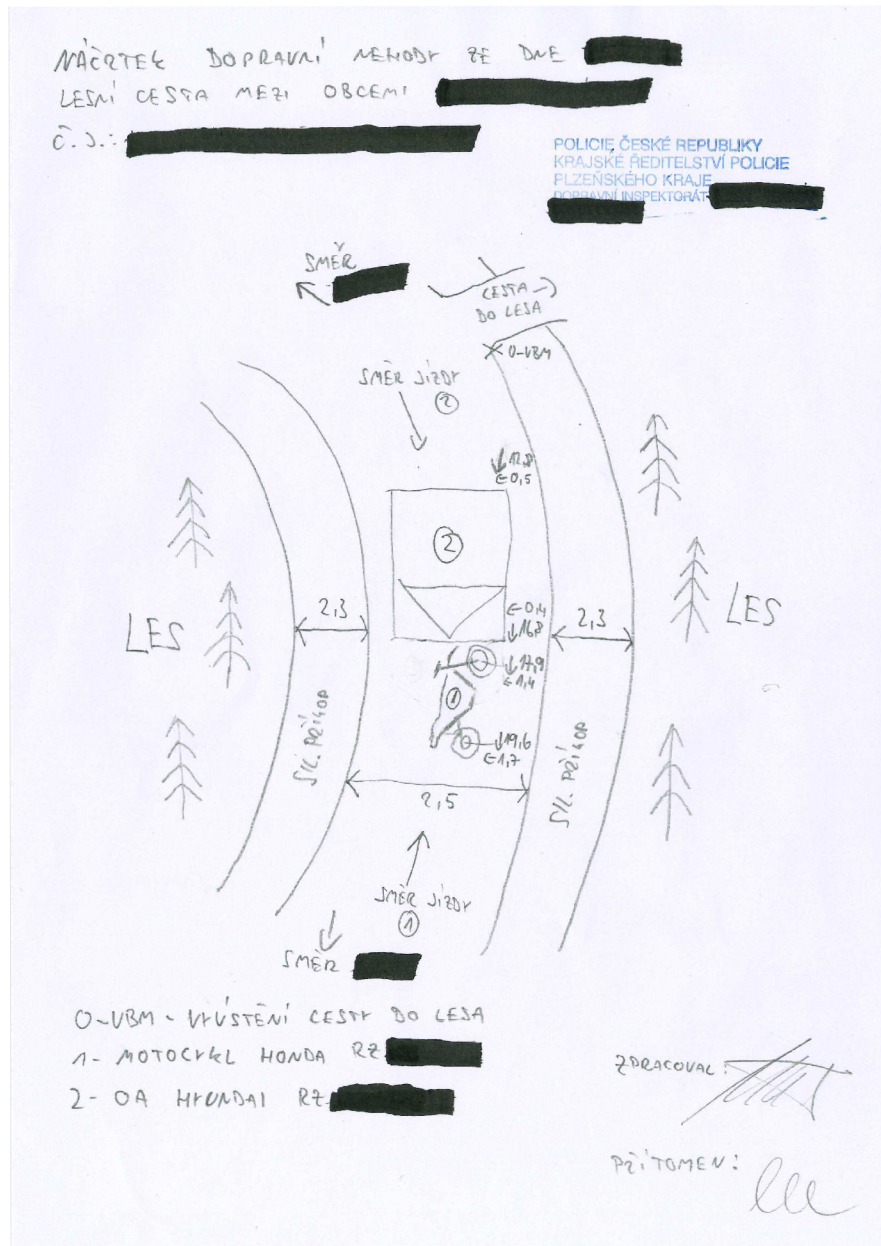 NÁČRTEK DOPRAVNÍ NEHODY ZE DNE
LESNÍ CESTA MEZI OBCEMI
Č.J.:
POLICIE ČESKÉ REPUBLIKY
KRAJSKÉ ŘEDITELSTVÍ POLICIE
PLZEŇSKÉHO KRAJE
DOPRAVNÍ INSPEKTORÁT
SMĚR
CESTA
DO LESA
O-VBM
SMĚR JÍZDY
2
↓12,8
←0,5
2
←0,4
↓16,8
2,3
2,3
LES
LES
↓17,9
←1,4
1
↓19,6
←1,7
SIL. PŘÍKOP
SIL. PŘÍKOP
2,5
SMĚR JÍZDY
1
SMĚR
O-VBM - VYÚSTĚNÍ CESTY DO LESA
1- MOTOCYKL HONDA RZ
2- OA HYUNDAI RZ
ZPRACOVAL:
PŘÍTOMEN: